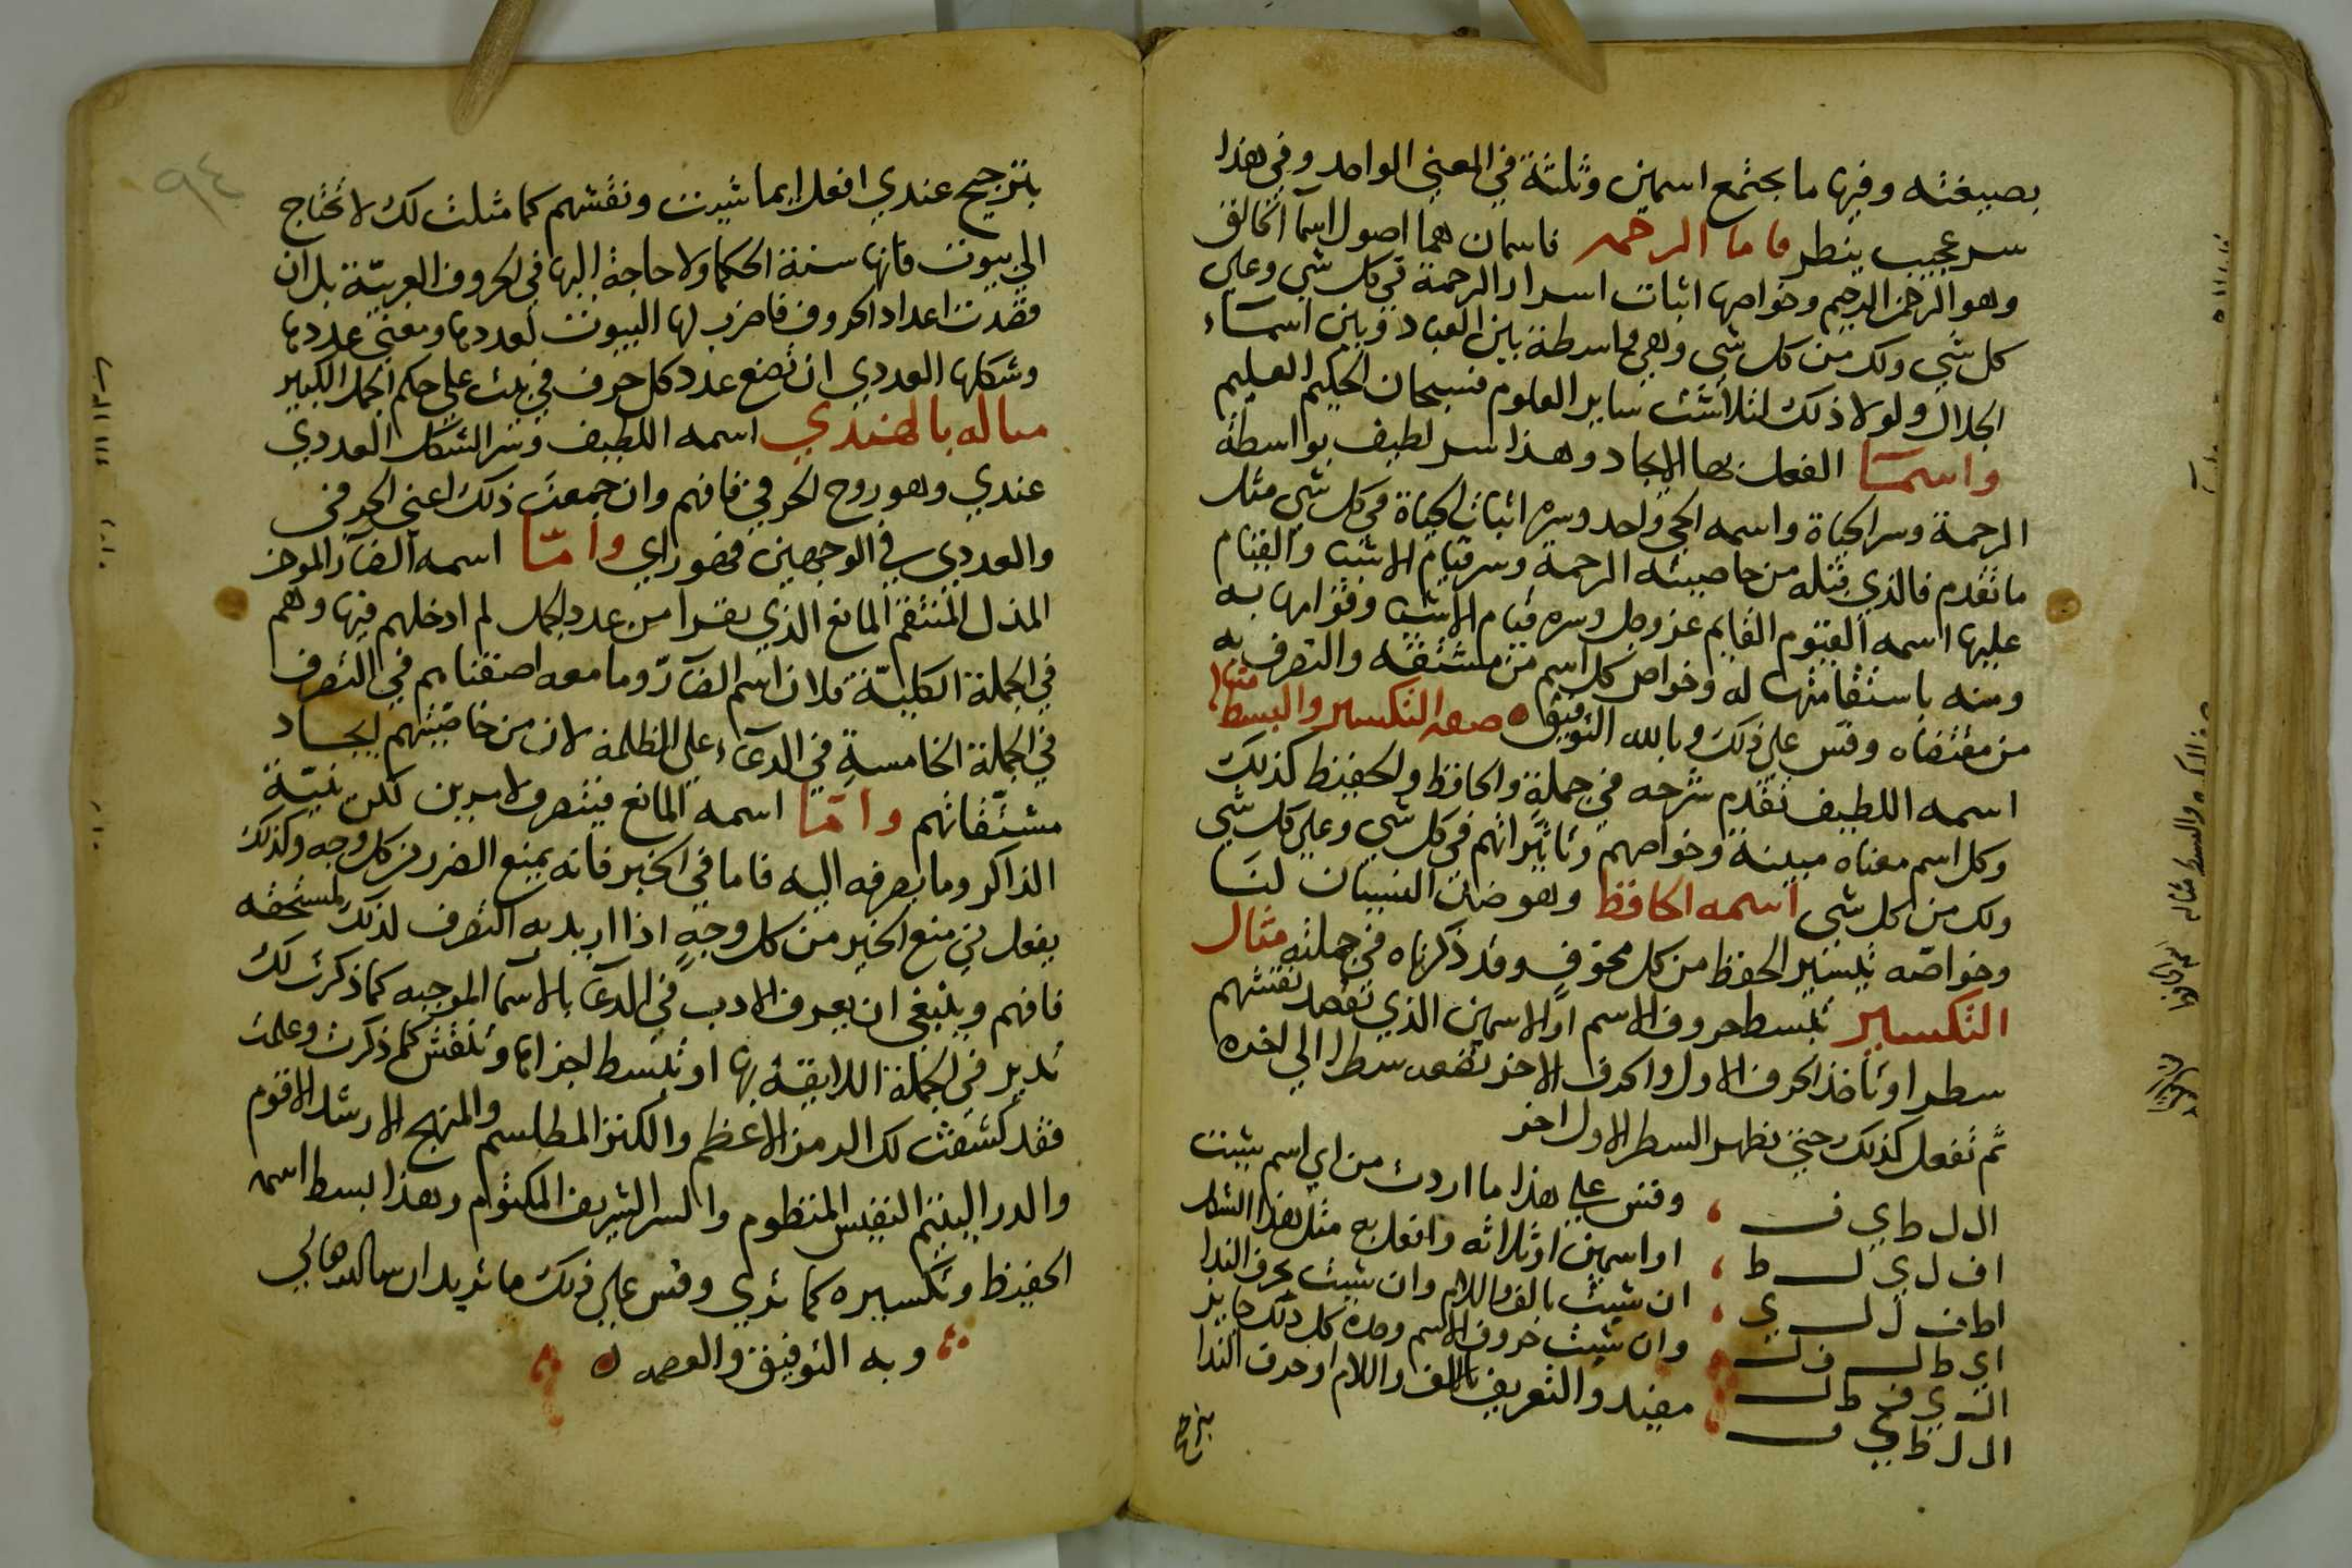 بصيغته وفيها ما يجتمع اسمين وثلثة في المعني الواحد وفي هذا
سر عجيب ينظر فاما الرحمه فاسمان هما اصول اسما الخالق
وهو الرحمن الرحيم وخواصها اثبات اسرار الرحمة في كل شي وعلي
كل شي ولك من كل شي وهي واسطة بين العباد وبين اسماء
الجلال ولولا ذلك لتلاشت ساير العلوم فسبحان الحكيم العليم
واسما الفعل بها الايجاد وهذا سر لطيف بواسطة
الرحمة وسر الحياة واسمه الحي واحد وسره اثبات الحياة في كل شي مثل
ما تقدم فالذي قبله من خاصيته الرحمة وسر قيام الاشيا والقيام
عليها اسمه القيوم القايم عز وجل وسره قيام الاشيا وقوامها به
ومنه باستقامتها له وخواص كل اسم من مشتقه والتصرف به
من مقتضاه وقس علي ذلك وبالله التوفيق صفه التكسير والبسط
اسمه اللطيف تقدم شرحه في جملة والحافظ والحفيظ كذلك
وكل اسم معناه مبينة وخواصهم وتاثيراتهم في كل شي وعلي كل شي
ولك من كل شي اسمه الحافظ وهو ضد النسيان لنا
وخواصه تيسير الحفظ من كل مخوف وقد ذكرناه في جملته مثال
التكسير تبسط حروف الاسم او الاسمين الذي تقصد تنقشهم
سطرا وتاخذ الحرف الاول والحرف الاخر تضعه سطرا الي اخره
ثم تفعل كذلك حتي يظهر السطر الاول اخر
ال ل ط ي ف وقس علي هذا ما اردت من اي اسم شيت
ا ف ل ي ل ط او اسمين او ثلاثه وافعل به مثل هذا الشكل
ا ط ف ل ل ي ان شيت بالف واللام وان شيت بحرف الندا
ا ي ط ل ف ل وان شيت حروف الاسم وحده كل ذلك جايز
ال ي ف ط ل مفيد والتعريف بالالف واللام او حرف الندا
ال ل ط ي ف
بترجيح
٩٤
بترجيح عندي افعل ايما شيت ونقشهم كما مثلت لك لا تحتاج
الي بيوت فانها سنة الحكما ولا حاجة اليها في الحروف العربية بل ان
قصدت اعداد الحروف فاضرب لها البيوت لعددها ومعني عددها
وشكلها العددي ان تضع عدد كل حرف في بيت علي حكم الجمل الكبير
مثاله بالهندي اسمه اللطيف وسر الشكل العددي
عندي وهو روح الحرفي فافهم وان جمعت ذلك اعني الحرفي
والعددي في الوجهين فهو راي واما اسمه الضار الموخر
المذل المنتقم المانع الذي نقرا من عدد الجمل لم ادخلهم فيها وهم
في الجملة الكلية فلان اسم الضار وما معه اضفناهم في التصرف
في الجملة الخامسة في الدعاء علي الظلمة لان من خاصيتهم ايجاد
مشتقاتهم واما اسمه المانع فيتصرف لامرين لكن بنية
الذاكر وما يصرفه اليه فاما في الخير فانه يمنع الضرر من كل وجه وكذلك
يفعل في منع الخير من كل وجه اذا اريد به التصرف لذلك لمستحقه
فافهم وينبغي ان يعرف الادب في الدعا بالاسما الموجبه كما ذكرت لك
تدبر في الجملة اللايقة بها او تبسط اجزاءها وتنقش كما ذكرت وعلمت
فقد كشفت لك الرمز الاعظم والكنز المطلسم والمنهج الارشد الاقوم
والدر اليتيم النفيس المنظوم والسر الشريف المكتوم وهذا بسط اسمه
الحفيظ وتكسيره كما تري وقس علي ذلك ما تريد ان شا الله تعالي
وبه التوفيق والعصمه